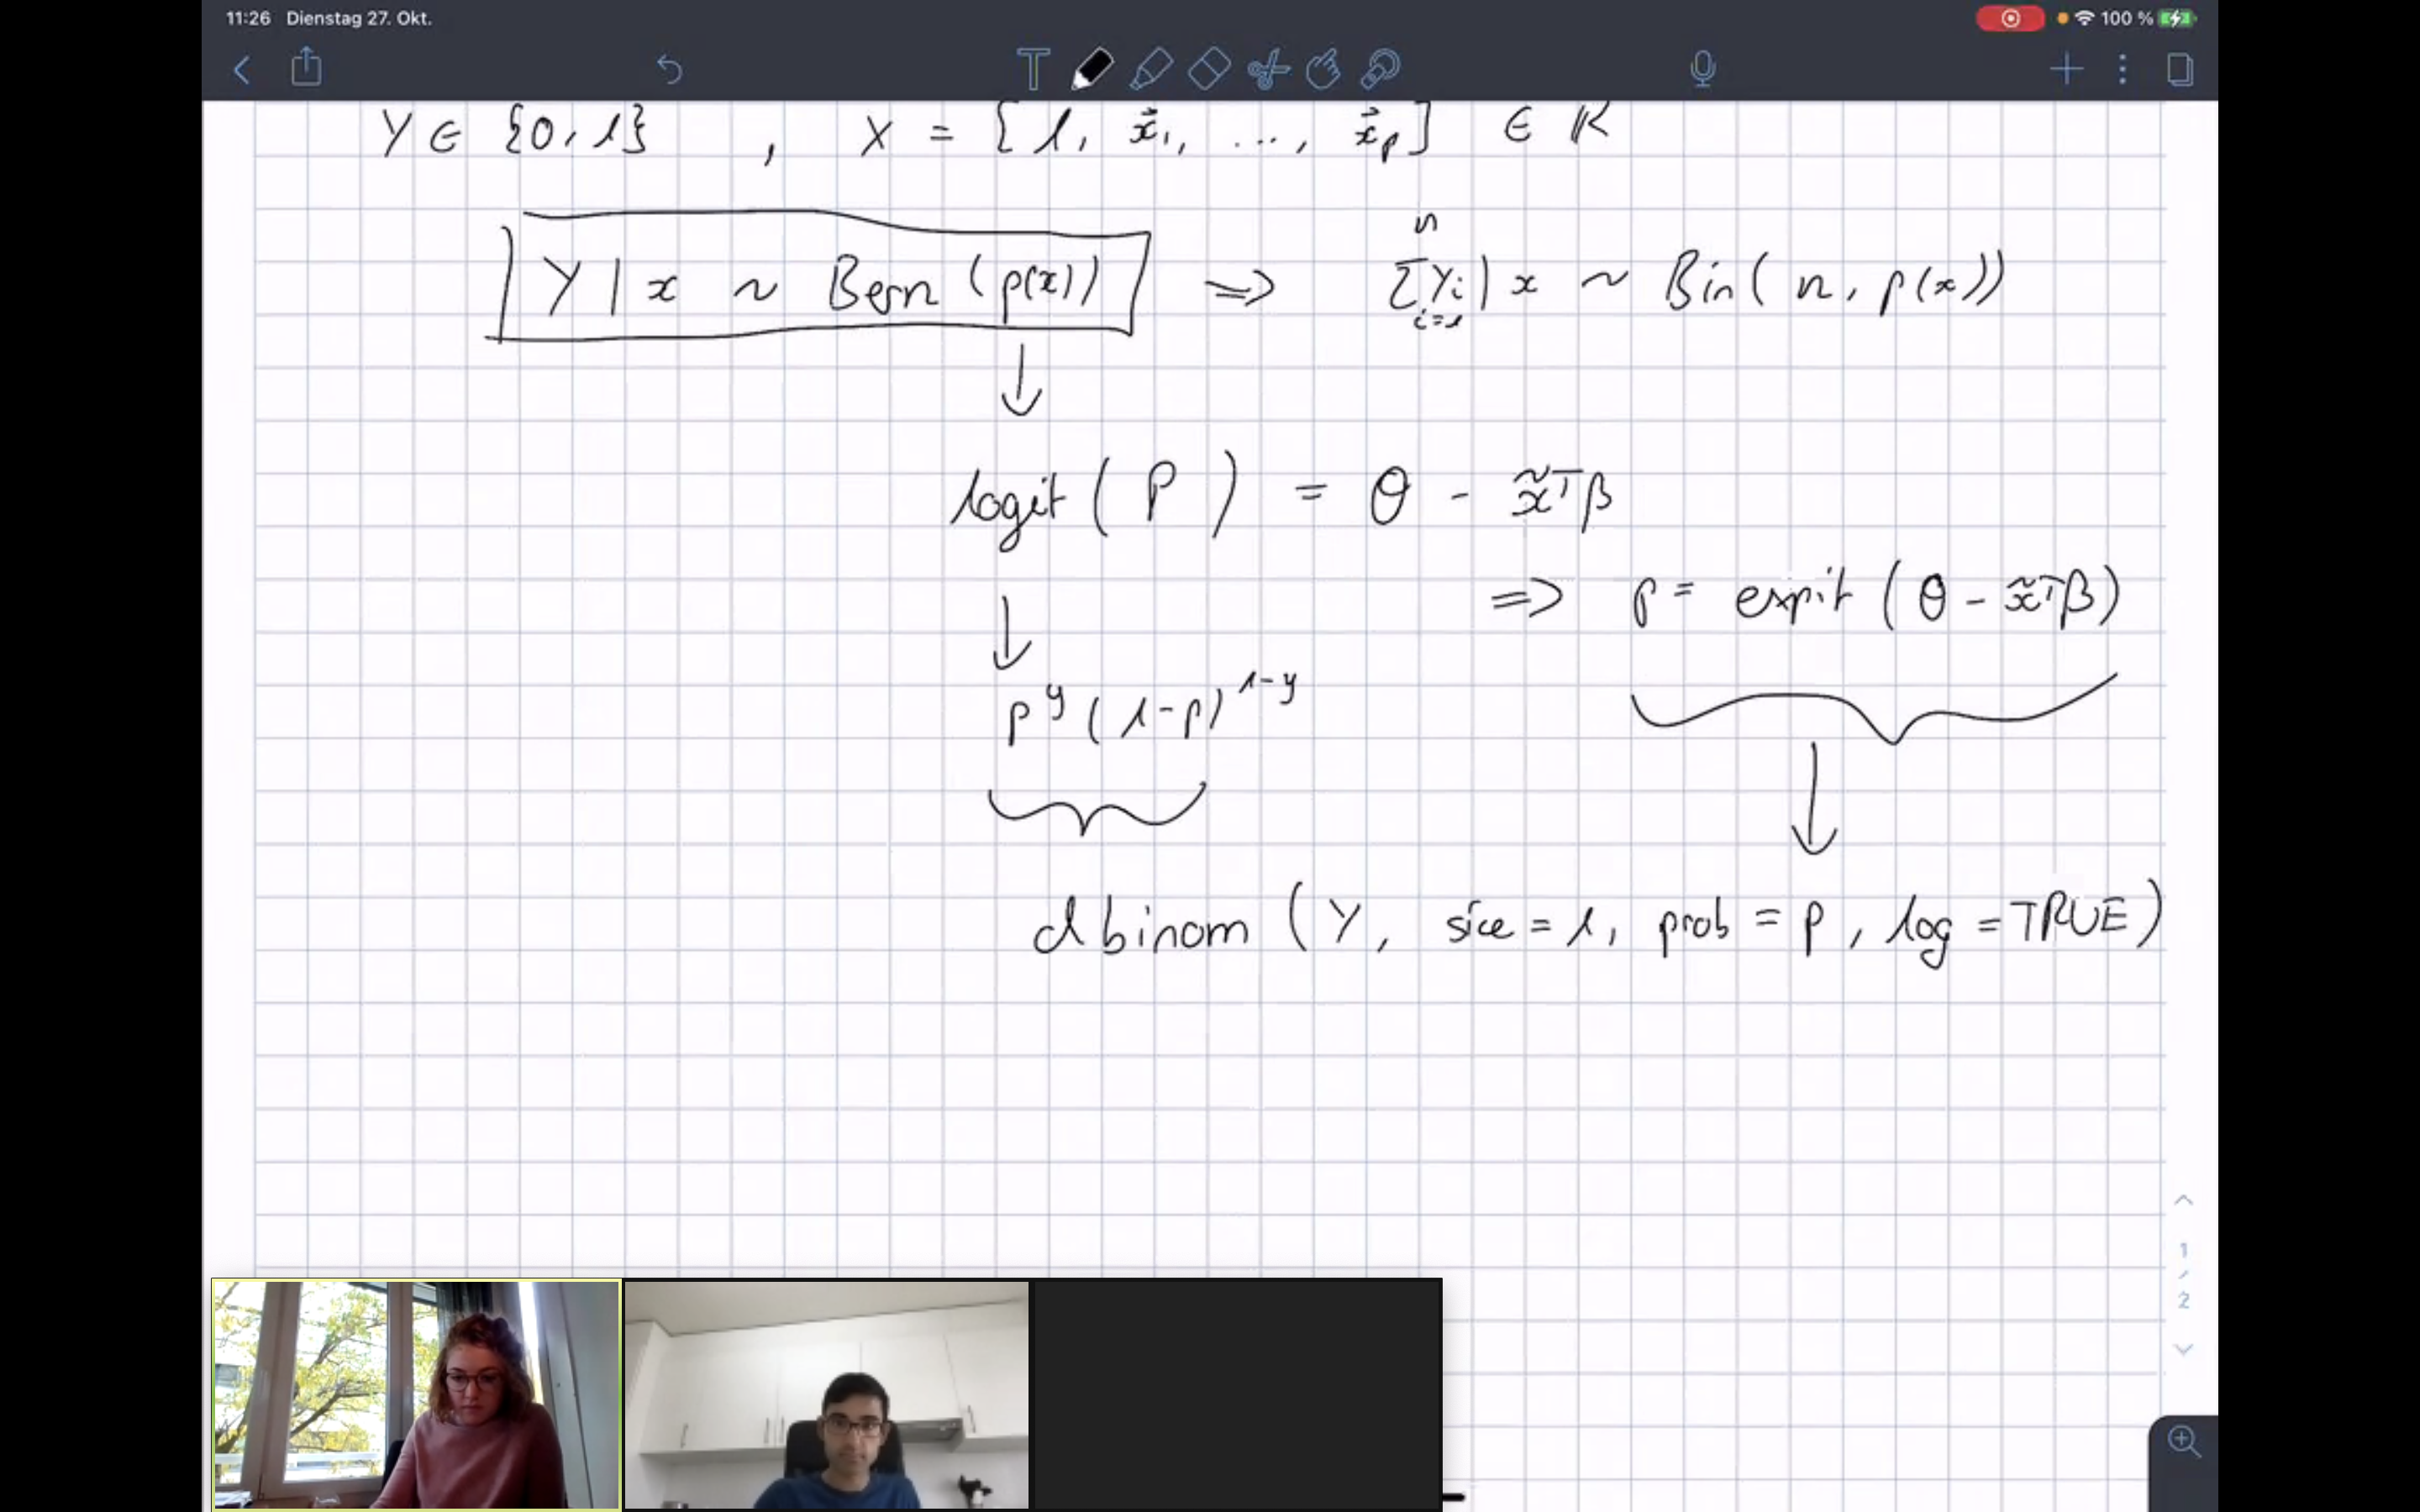 11:26 Dienstag 27. Okt. 100 %
T
Y ∈ {0, 1} , X = [1, x⃗₁, ..., x⃗ₚ] ∈ ℝ
Y | x ~ Bern (p(x)) ⇒ Σᵢ₌₁ⁿ Yᵢ | x ~ Bin( n, p(x))
↓
logit ( P ) = θ - x̃ᵀβ
⇒ p = expit ( θ - x̃ᵀβ)
↓
p^y (1-p)^1-y
↓
dbinom (Y, size = 1, prob = p, log = TRUE)
1 / 2